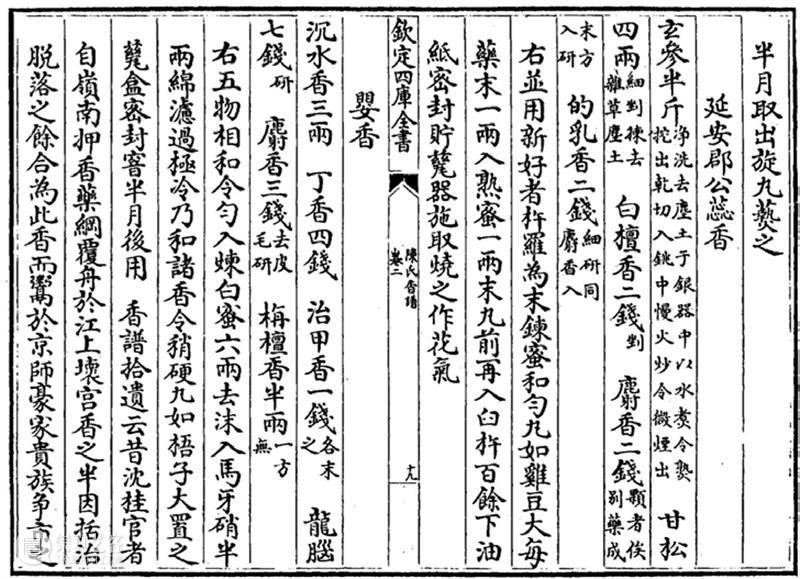 半月取出旋丸爇之
延安郡公蕊香
玄參半斤淨洗去塵土于銀器中以水煮令熟控出乾切入銚中慢火炒令微煙出 甘松
四兩細剉揀去雜草塵土 白檀香二錢剉 麝香二錢顆者俟別藥成
末方入研 的乳香二錢細研同麝香入
右並用新好者杵羅為末鍊蜜和勻丸如雞豆大每
藥末一兩入熟蜜一兩末丸前再入臼杵百餘下油
紙密封貯甆器施取燒之作花氣
欽定四庫全書
陳氏香譜
卷二
十九
嬰香
沉水香三兩 丁香四錢 治甲香一錢各末之 龍腦
七錢研 麝香三錢去皮毛研 栴檀香半兩一方無
右五物相和令勻入煉白蜜六兩去沫入馬牙硝半
兩綿濾過極冷乃和諸香令稍硬丸如梧子大置之
甆盒密封窨半月後用 香譜拾遺云昔沈桂官者
自嶺南押香藥綱覆舟於江上壞宮香之半因括治
脫落之餘合為此香而鬻於京師豪家貴族爭市之